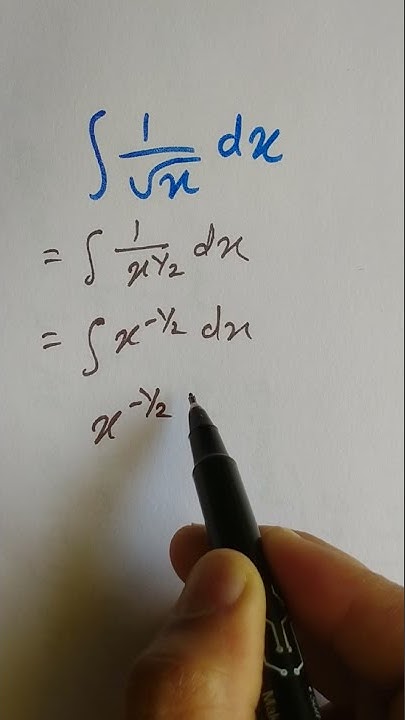 ∫ 1/√x dx
= ∫ 1/x^1/2 dx
= ∫ x^-1/2 dx
x^-1/2